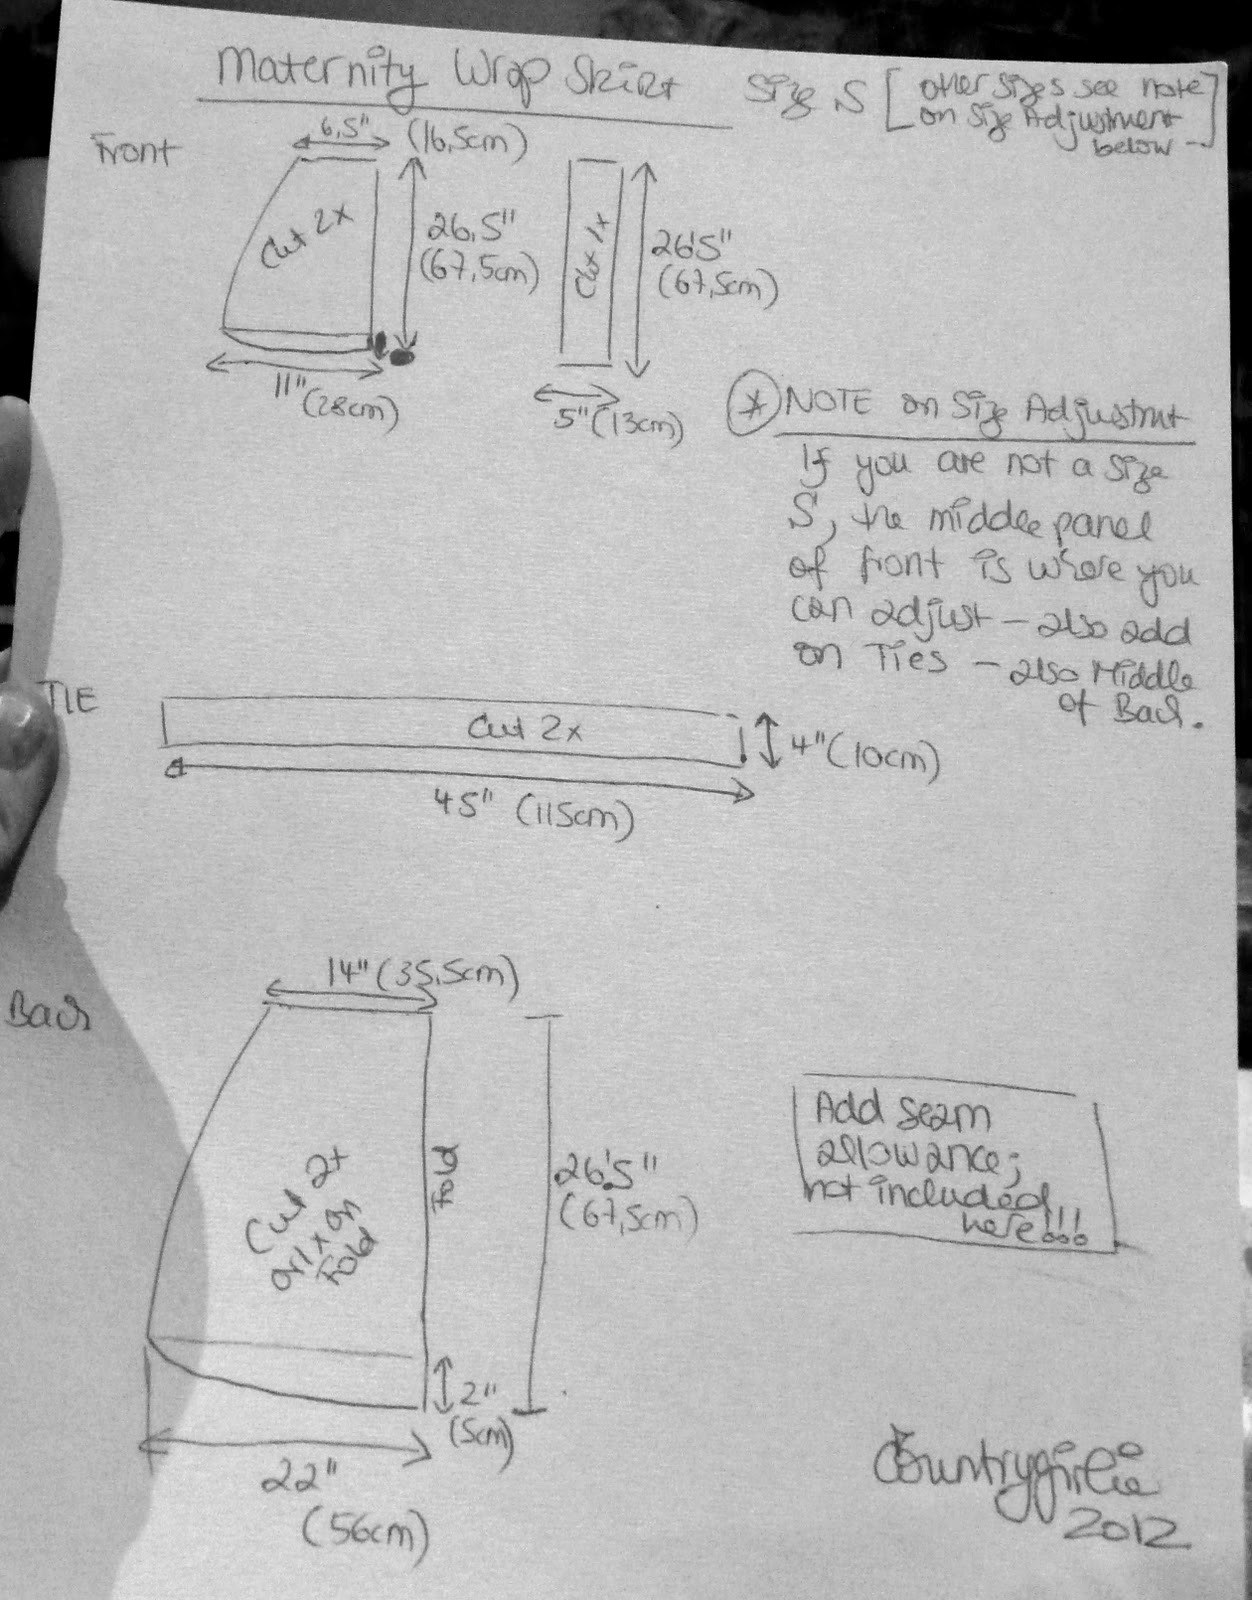 Maternity Wrap Skirt
Size S [other sizes see note
on Size Adjustment
below -]
Front
6,5" (16,5cm)
Cut 2x
26,5"
(67,5cm)
11" (28cm)
Cut 1x
26'5"
(67,5cm)
5" (13cm)
* NOTE on Size Adjustmnt
If you are not a size
S, the middle panel
of front is where you
can adjust - also add
on Ties - also Middle
of Back.
TIE
Cut 2x
4" (10cm)
45" (115cm)
Back
14" (35,5cm)
Cut 2x
or 1x on
Fold
Fold
26'5"
(67,5cm)
2"
(5cm)
22"
(56cm)
Add seam
allowance;
not included
here!!!
Countrygirlie
2012